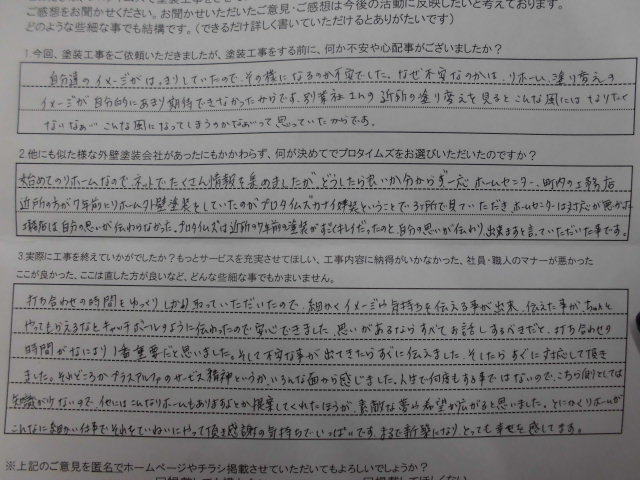 ご感想をお聞かせください。お聞かせいただいたご意見・ご感想は今後の活動に反映したいと考えております。
どのような些細な事でも結構です。（できるだけ詳しく書いていただけるとありがたいです）
1.今回、塗装工事をご依頼いただきましたが、塗装工事をする前に、何か不安や心配事がございましたか？
自分達のイメージがはっきりしていたので、その様になるのか不安でした。なぜ不安なのかは、リホーム、塗り考えの
イメージが自分的にあまり期待できなかったからです。別業社さんの近所の塗り考えを見るとこんな風にはなりたく
ないなぁ〜こんな風になってしまうのかなぁ〜って思っていたからです。
2.他にも似た様な外壁塗装会社があったにもかかわらず、何が決めてでプロタイムズをお選びいただいたのですか？
始めてのリホームなので、ネットでたくさん情報を集めましたが、どうしたら良いか分からず一応ホームセンター、町内の工務店
近所の方が7年前にリホームで外壁塗装をしていたのがプロタイムズカナイ塗装ということで3ヶ所で見ていただき、ホームセンターは対応が悪かった
工務店は自分の思いが伝わらなかった。プロタイムズは近所の7年前の塗装がすごくキレイだったのと、自分の思いが伝わり、出来ますと言っていただいた事です。
3.実際に工事を終えていかがでしたか？もっとサービスを充実させてほしい、工事内容に納得がいかなかった、社員・職人のマナーが悪かった
ここが良かった、ここは直した方が良いなど、どんな些細な事でもかまいません。
打ち合わせの時間をゆっくりしっかり取っていただいたので、細かくイメージや気持ちを伝える事が出来、伝えた事がちゃんと
やってもらえるなとキャッチボールのように伝わったので安心できました。思いがあるならすべてお話しするべきだと、打ち合わせの
時間がなにより1番重要だと思いました。そして不安な事が出てきたらすぐに伝えました。そしたらすぐに対応して頂き
ました。それどころかプラスアルファのサービス精神というか、いろんな面から感じました。人生で何度もする事ではないので、こちら側としては
知識が少ないので、他にはこんなリホームもありますよとか提案してくれたほうが、素敵な夢や希望が広がると思いました。とにかくリホームが
こんなに細かい仕事で、それをていねいにやって頂き感謝の気持ちでいっぱいです。まるで新築になり、とっても幸せを感じてます。
※上記のご意見を匿名でホームページやチラシ掲載させていただいてもよろしいでしょうか？